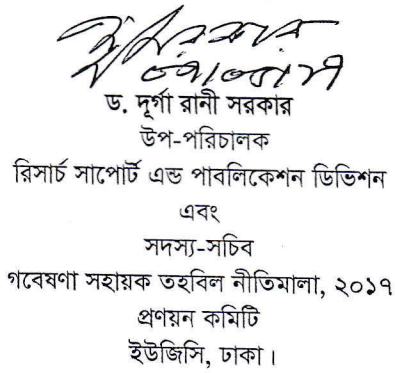 ড. দূর্গা রানী সরকার
উপ-পরিচালক
রিসার্চ সাপোর্ট এন্ড পাবলিকেশন ডিভিশন
এবং
সদস্য-সচিব
গবেষণা সহায়ক তহবিল নীতিমালা, ২০১৭
প্রণয়ন কমিটি
ইউজিসি, ঢাকা।